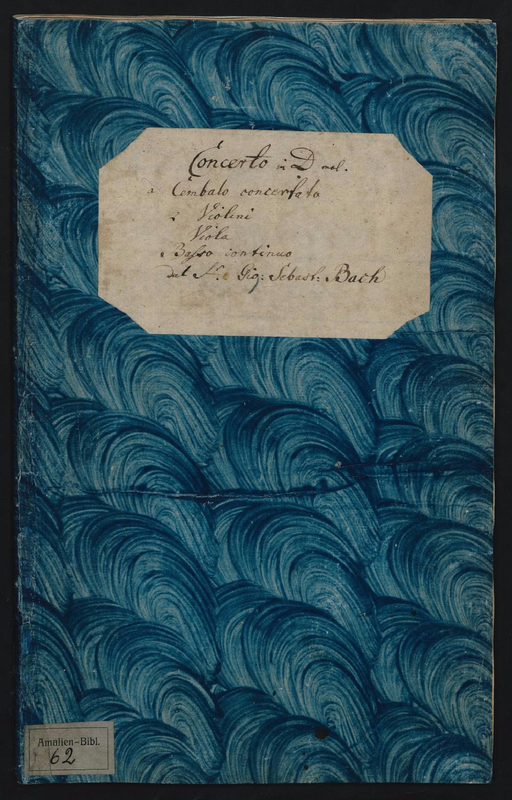 Concerto in D mol.
a Cembalo concertato
2 Violini
Viola
Basso continuo
del Sr. Gio: Sebast: Bach
Amalien-Bibl.
62